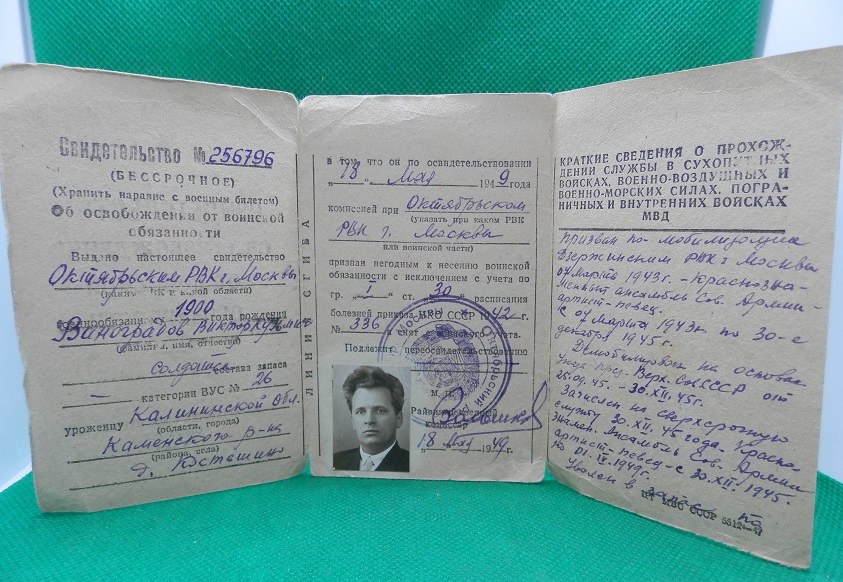 Свидетельство № 256796
(БЕССРОЧНОЕ)
(Хранить наравне с военным билетом)
Об освобождении от воинской
обязанности
Выдано настоящее свидетельство
Октябрьским РВК г. Москвы
(каким РВК и какой области)
военнообязанному 1900 года рождения
Виноградов Виктор Кузьмич
(фамилия, имя, отчество)
солдат состава запаса
— категории ВУС № 26
уроженцу Калининской Обл.
(области, города)
Каменского р-на
(района, село)
д. Косташино
ЛИНИЯ СГИБА
в том, что он по освидетельствовании
"18" Мая 1949 года
комиссией при Октябрьском
(указать при каком РВК
РВК г. Москвы
или воинской части)
признан негодным к несению воинской
обязанности с исключением с учета по
гр. I ст. 30 расписания
болезней приказа НКО СССР 1942 г.
№ 336 снят с воинского учета.
Подлежит переосвидетельствованию
М. П.
Районный военный
комиссар
18 Мая 1949 г.
КРАТКИЕ СВЕДЕНИЯ О ПРОХОЖ-
ДЕНИИ СЛУЖБЫ В СУХОПУТНЫХ
ВОЙСКАХ, ВОЕННО-ВОЗДУШНЫХ И
ВОЕННО-МОРСКИХ СИЛАХ, ПОГРА-
НИЧНЫХ И ВНУТРЕННИХ ВОЙСКАХ
МВД
Призван по мобилизации
Дзержинским РВК г Москвы
07 марта 1943г. - Краснозна-
менный ансамбль Сов. Армии -
артист-певец.
с 07 марта 1943г. по 30-е
декабря 1945г.
Демобилизован на основан.
Указ. През. Верх. Сов. СССР от
25.09.45. - 30.XII.45г.
Зачислен на сверхсрочную
службу 30.XII.45 года. Красно-
знамен. Ансамбль Сов. Армии
артист-певец - с 30.XII.1945г.
по 01.IV.1949г.
Уволен в запас по